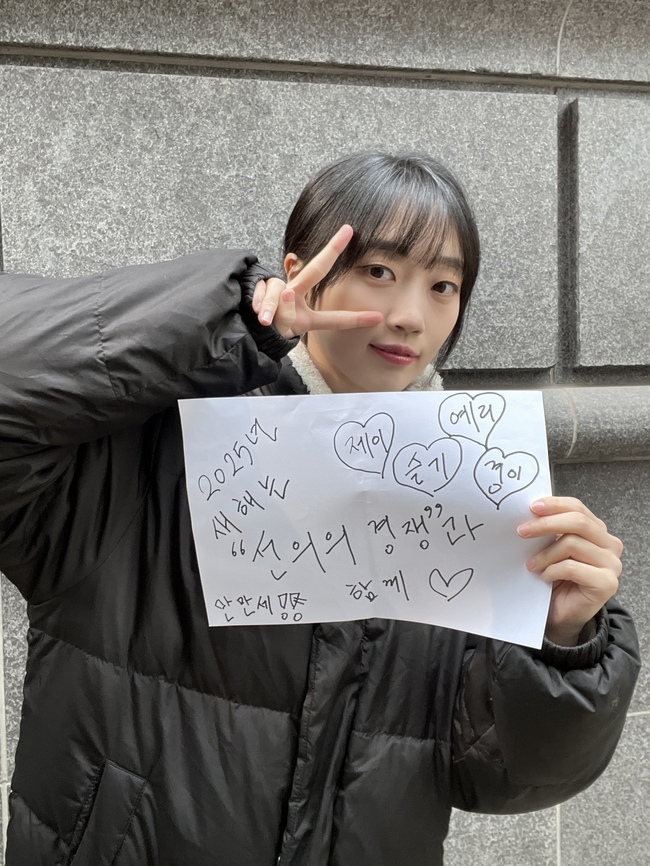 2025년
새해는
제이
예리
슬기
경이
"선의의 경쟁"과
함께 ♡
만만세